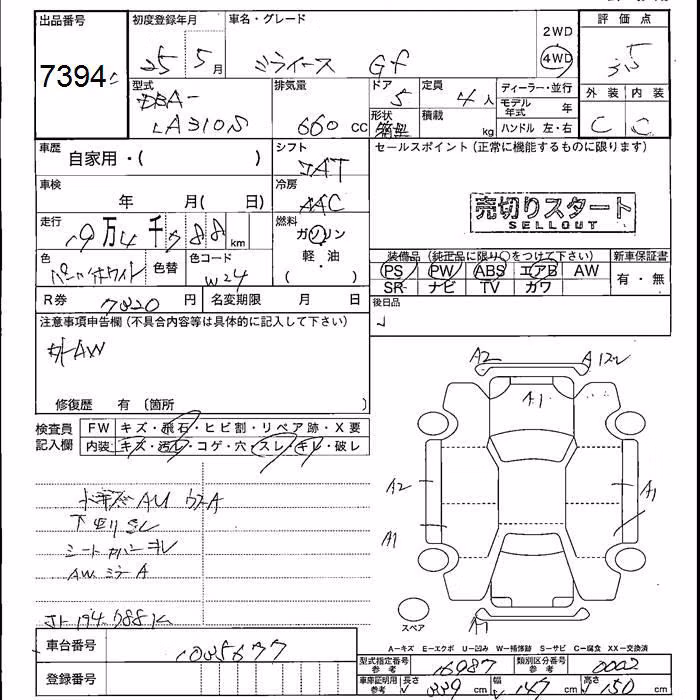 出品番号
7394
初度登録年月
25 5月
車名・グレード
ミライース Gf
2WD
4WD
評価点
3.5
型式
DBA-
LA310S
排気量
660 cc
ドア
5
形状
定員
4人
積載
kg
ディーラー・並行
モデル年式 年
ハンドル 左・右
外装 内装
C C
車歴
自家用・( )
シフト
IAT
セールスポイント(正常に機能するものに限ります)
車検
年 月( 日)
冷房
AAC
売切りスタート
SELLOUT
走行
19万4千788km
燃料
ガソリン
軽・油
( )
色
パールホワイト
色替
色コード
W24
装備品(純正品に限り○をつけて下さい)
新車保証書
PS PW ABS エアB AW
SR ナビ TV カワ
有・無
R券
7820円
名変期限 月 日
後日品
注意事項申告欄(不具合内容等は具体的に記入して下さい)
外AW
修復歴 有 〔箇所 〕
検査員
記入欄
FW キズ・飛石・ヒビ割・リペア跡・X要
内装 キズ・汚レ・コゲ・穴・スレ・キレ・破レ
下廻リサビ
シートカバーキレ
AW ミラーA
A2
A1
A2
A1
A1
A1
スペア
A-キズ E-エクボ U-凹み W-補修跡 S-サビ C-腐食 XX-交換済
車台番号
1035677
登録番号
型式指定番号
参考
16987
類別区分番号
参考
0002
車庫証明用
参考
長さ
339
幅
147
高さ
150